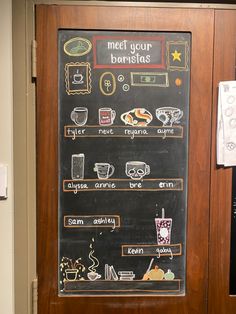 meet your
baristas
tyler neve reyana ayme
alyssa annie bre erin
sam ashley
kevin gaby